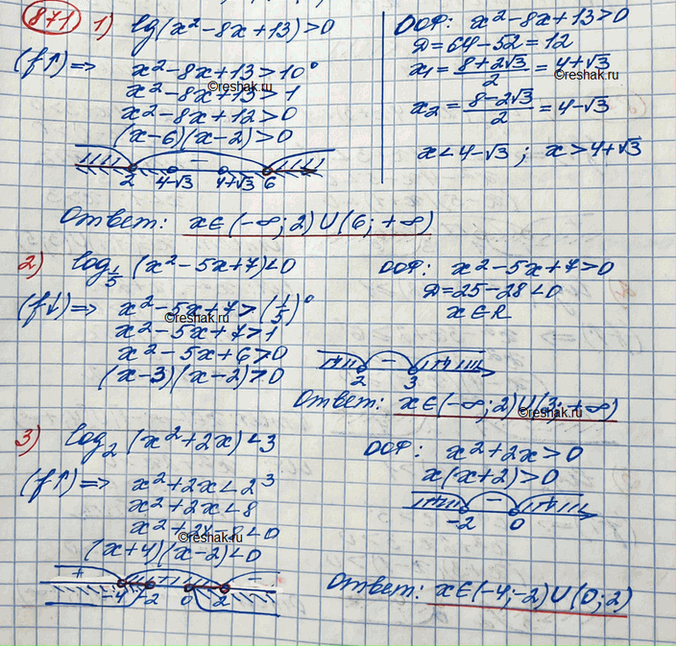 871 1) lg(x²-8x+13)>0
(f↑)=> x²-8x+13>10⁰
x²-8x+13>1
x²-8x+12>0
(x-6)(x-2)>0
2 4-√3 4+√3 6
ООФ: x²-8x+13>0
Д=64-52=12
x₁=(8+2√3)/2=4+√3
x₂=(8-2√3)/2=4-√3
x<4-√3; x>4+√3
Ответ: x∈(-∞;2)U(6;+∞)
2) log₁/₅(x²-5x+7)<0
(f↓)=> x²-5x+7>(1/5)⁰
x²-5x+7>1
x²-5x+6>0
(x-3)(x-2)>0
ООФ: x²-5x+7>0
Д=25-28<0
x∈R
+ - +
2 3
Ответ: x∈(-∞;2)U(3;+∞)
3) log₂(x²+2x)<3
(f↑)=> x²+2x<2³
x²+2x<8
x²+2x-8<0
(x+4)(x-2)<0
-4 -2 0 2
ООФ: x²+2x>0
x(x+2)>0
+ - +
-2 0
Ответ: x∈(-4;-2)U(0;2)
©reshak.ru
©reshak.ru
©reshak.ru
©reshak.ru
©reshak.ru